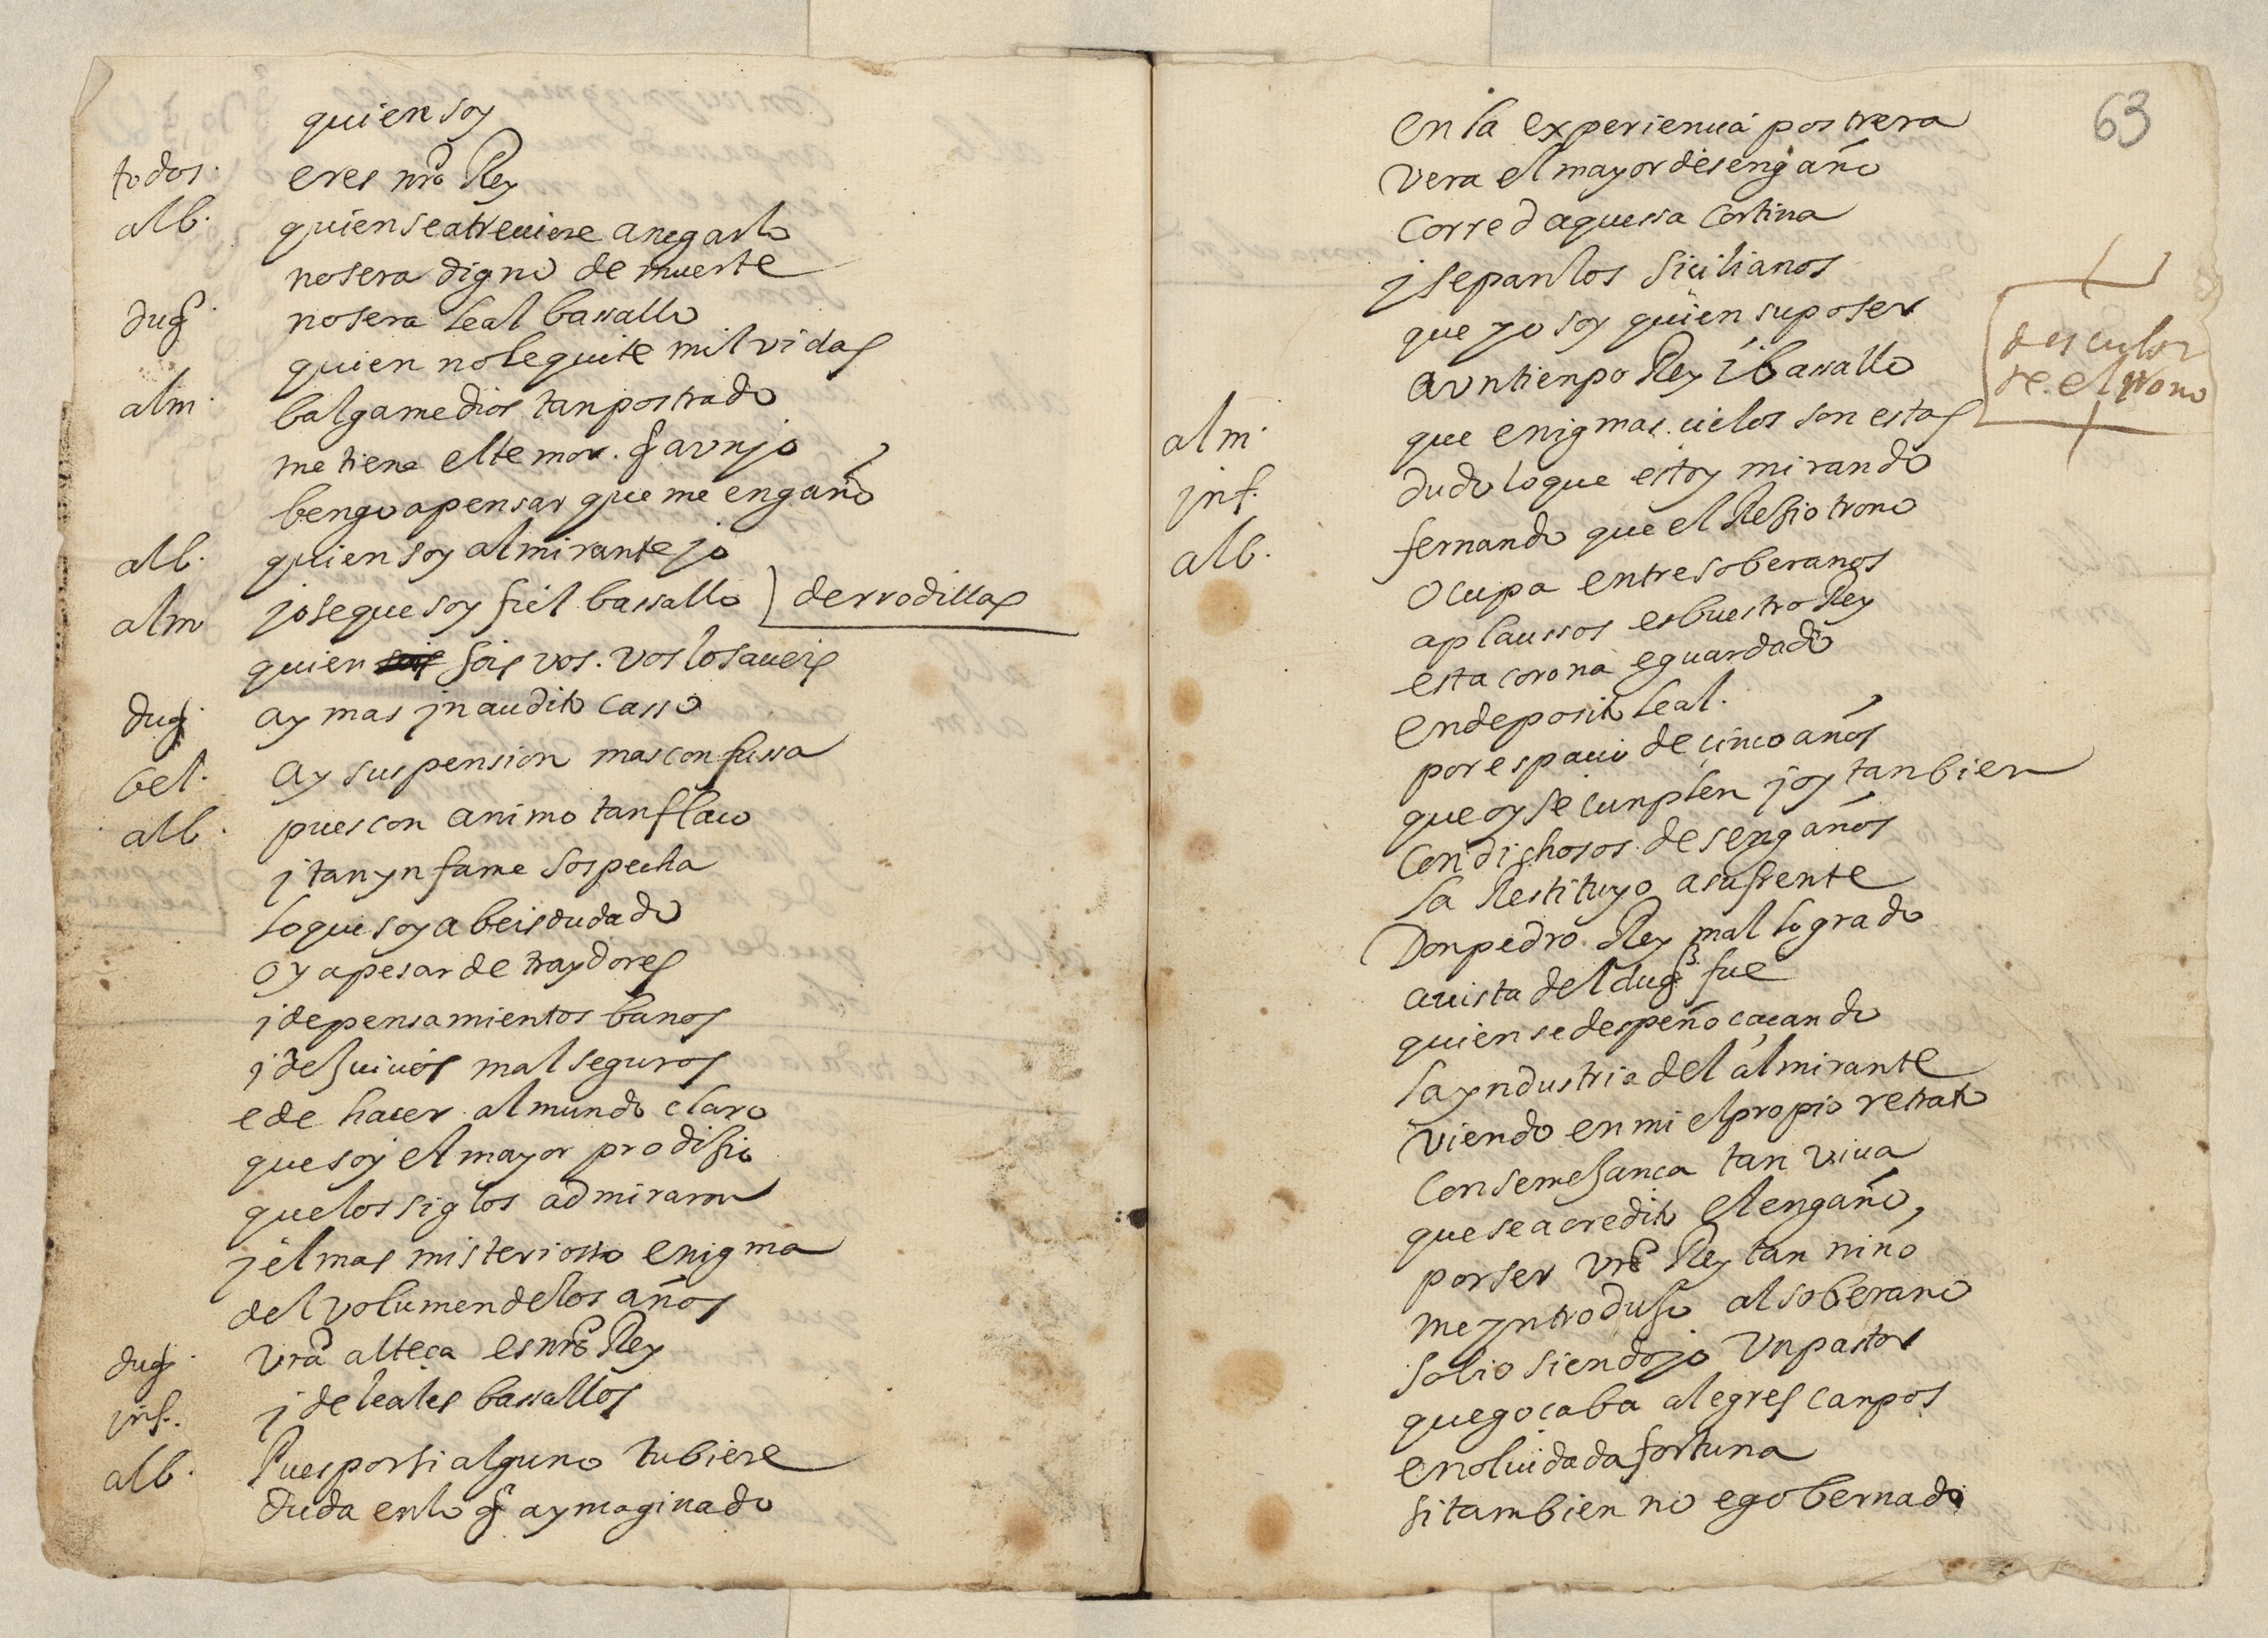 quien soy
todos. eres nro Rey
alb. quien seatreuiere anegarlo
nosera digno de muerte
duq. nosera leal bassallo
quien nolequite mil vidas
alm. balgamedios tanpostrado
me tiene eltemor. q aunjo
bengo apensar que me engaño
alb. quien soy almirante jo
alm jo seque soy fiel bassallo derrodillas
quien sois vos. vos losaueis
duq. ay mas jnaudito casso
bel. ay suspension mas confussa
alb. pues con animo tanflaco
j tan ynfame sospecha
loque soy abeis dudado
oy apesar de traydores
j depensamientos banos
j de Juicios mal seguros
e de hacer al mundo claro
que soj el mayor prodijio
quelos siglos admiraron
j el mas misteriosso enigma
del volumen delos años
duq. vra alteça es nro Rey
jnf. j de leales bassallos
alb. Pues porsi alguno tubiere
duda enlo q aymaginado
63
en la experiencia postrera
vera el mayor desengaño
corred aquessa cortina
j sepan los sicilianos
que yo soy quien supo ser
aun tienpo Rey i bassallo
descubre
se el trono
alm. que enigmas cielos son estas
jnf. dudo loque estoy mirando
alb. fernando que el Rejio trono
ocupa entre soberanos
aplaussos es buestro Rey
esta corona e guardado
en deposito leal.
por espacio de çinco años
que oy se cunplen j oy tanbien
con dichosos desengaños
la Restituyo asufrente
Don pedro Rey mal logrado
auista del duq fue
quien se despeño caçando
la yndustria del almirante
viendo en mi el propio retrato
con semejança tan viua
que se acredito el engaño,
por ser vro Rey tan niño
me yntrodujo al soberano
solio siendo jo vn pastor
que goçaba alegres canpos
en oluidada fortuna
si tambien no e gobernado